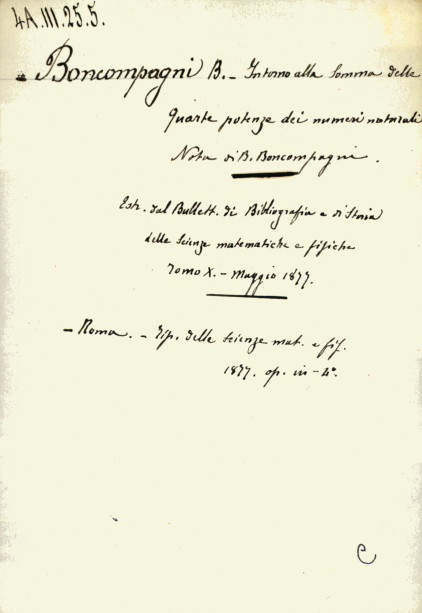 4A.III.25.5.
- Boncompagni B. - Intorno alla Somma delle
Quarte potenze dei numeri naturali
Nota di B. Boncompagni.
Estr. dal Bullett. di Bibliografia e di Storia
delle Scienze matematiche e fisiche
Tomo X. - Maggio 1877.
- Roma. - Tip. delle Scienze mat. e fis.
1877. op. in - 4°.
e